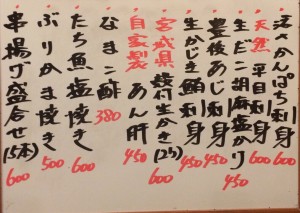 活かんぱち刺身 600
天然 平目刺身 600
生だこ胡麻塩かり 450
豊後あじ刺身 450
生かじき鮪刺身 450
宮城県 殻付生かき(2ケ) 600
自家製 あん肝 450
なまこ酢 380
たち魚塩焼き 600
ぶりかま焼き 500
串揚げ盛合せ(5本) 600